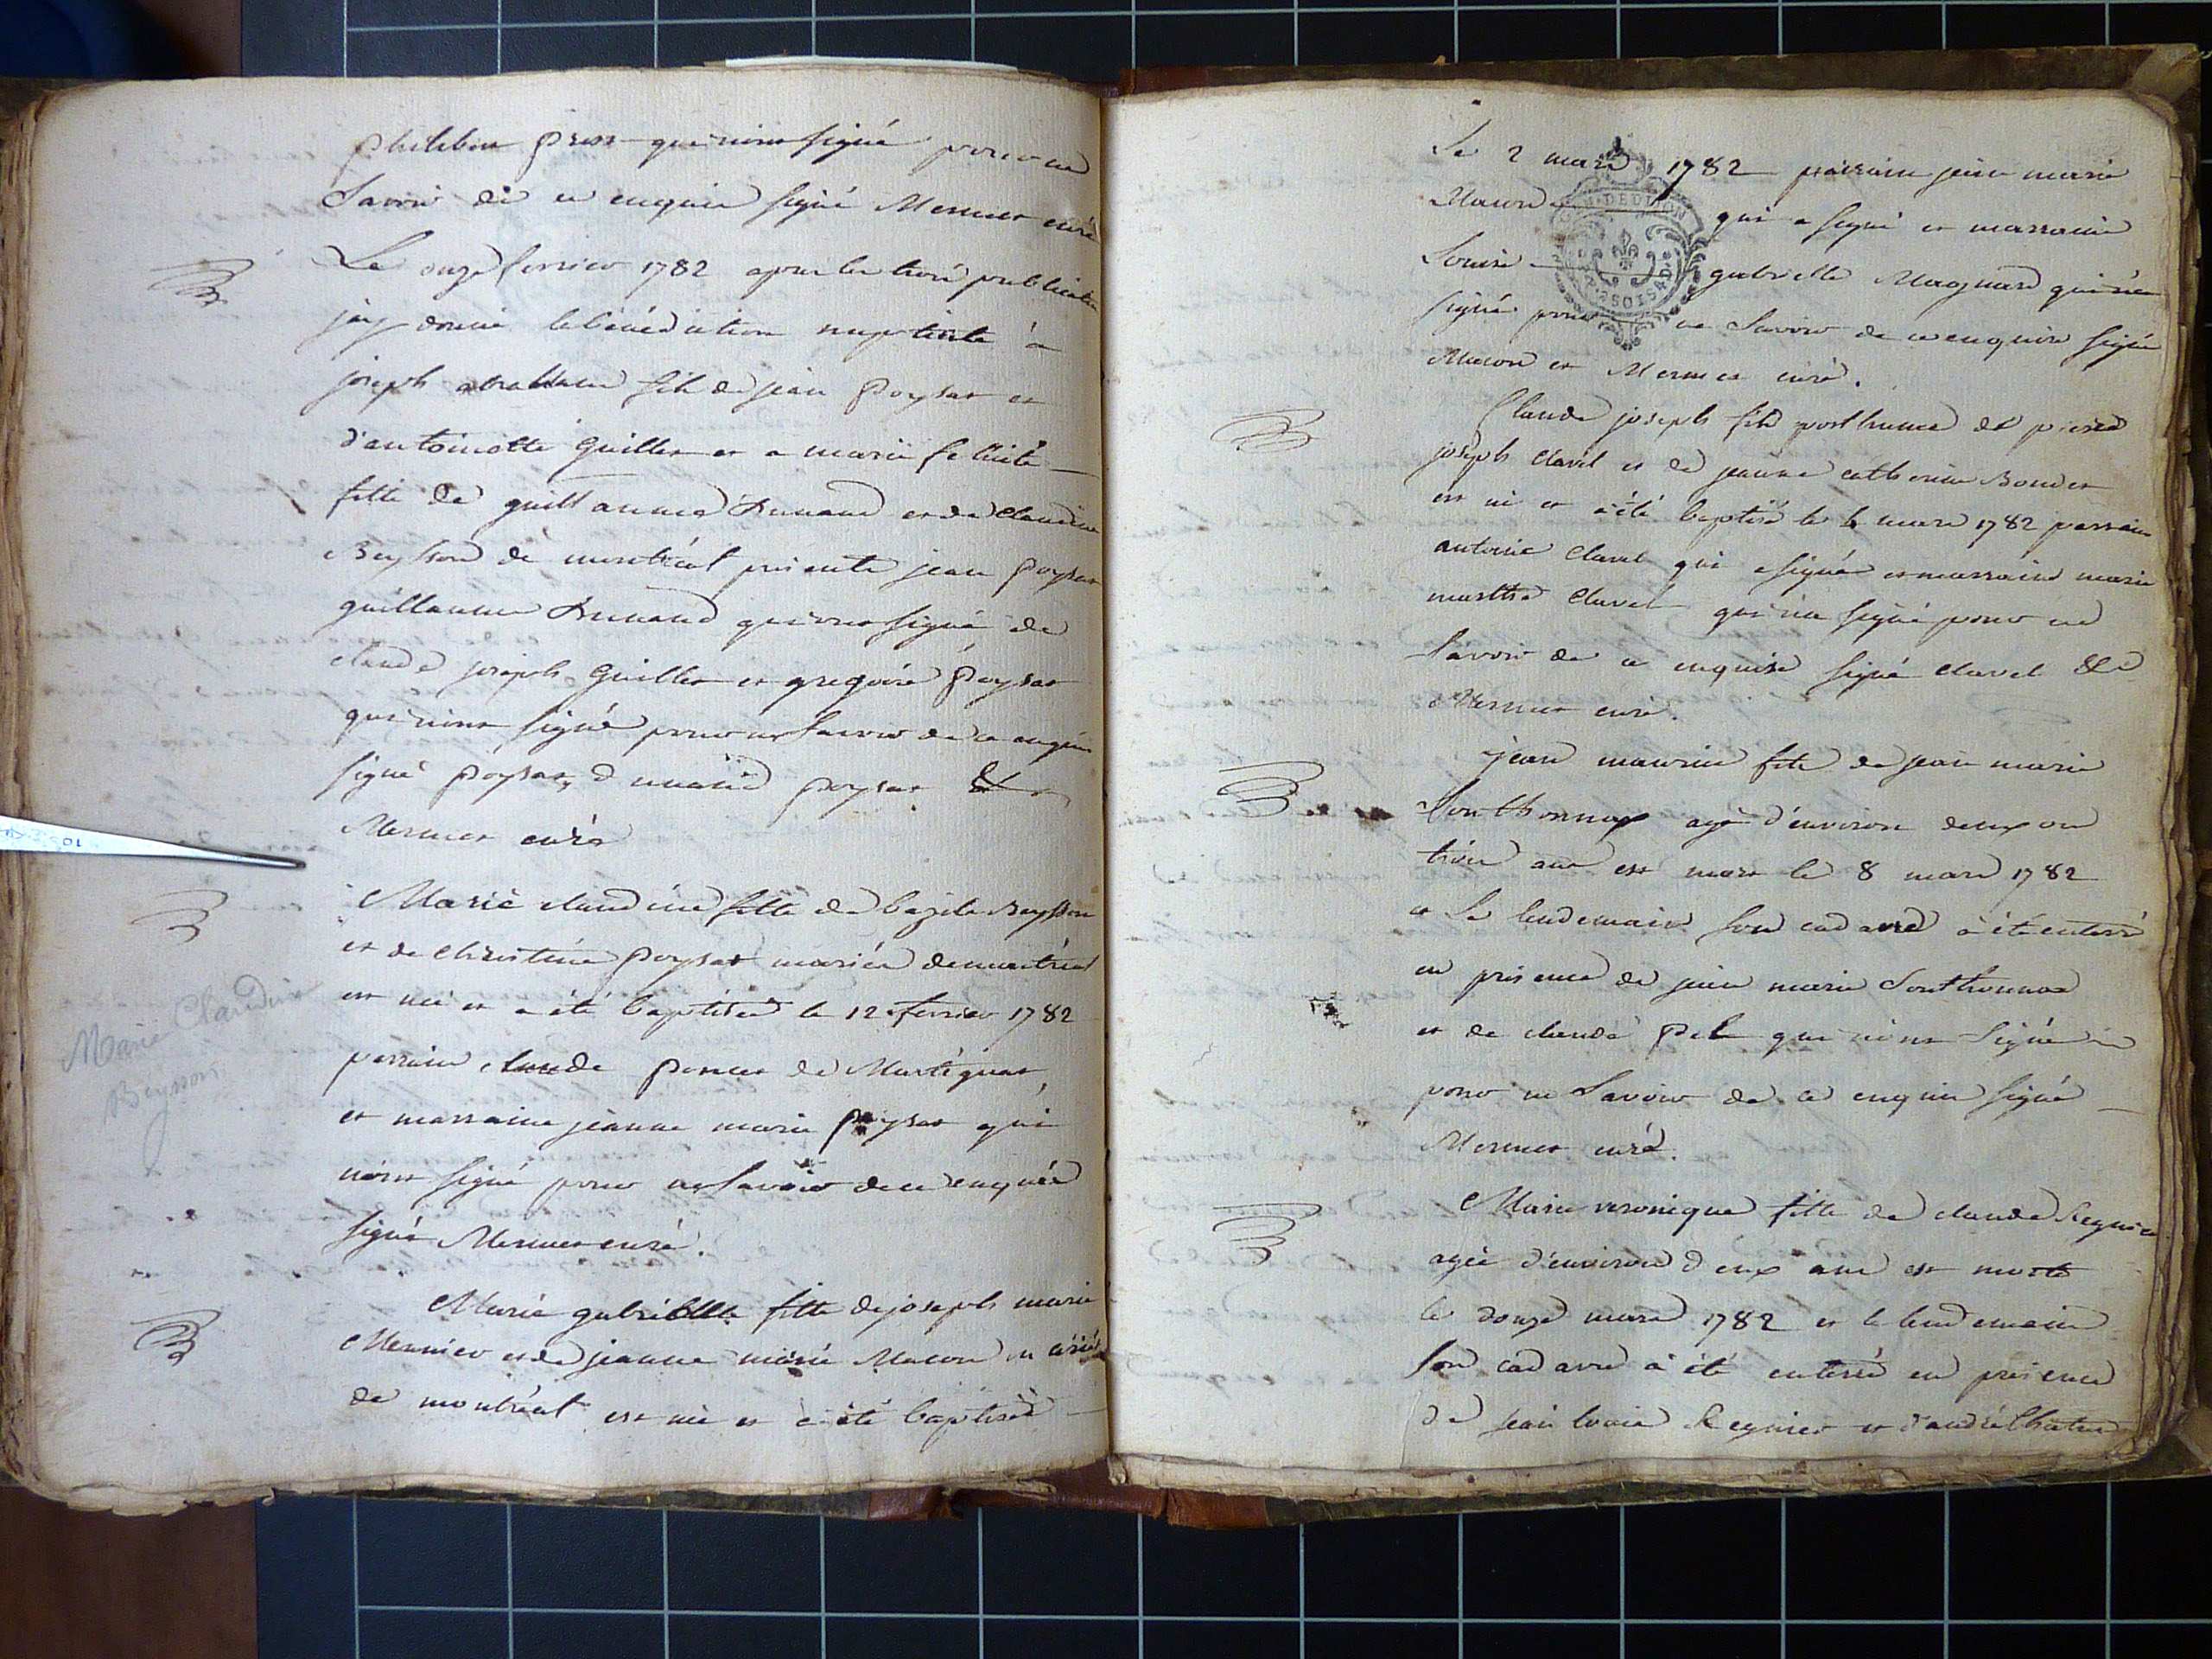 qui n'ont signé pour ne
savoir de ce enquis signé Mermet curé
Le onze fevrier 1782 apres les trois publications
jay donné la bénédiction nuptiale à
joseph fils de jean Poysat et
d'antoinette Guillet et a marie fellicité
fille de guillaume Dunand et de Claudine
Beysson de montréal presents jean Poysat
guillaume Dunand qui ont signé de
claude joseph Guillet et gregoire Poysat
qui n'ont signé pour ne savoir de ce enquis
signé Poysat, dunand poysat &
Mermet curé
Marie claudine fille de bazile Beysson
et de christine Poysat mariés de montréal
est née et a été baptisée le 12 fevrier 1782
parrain claude Poncet de Martignat
et marraine jeanne marie poysat qui
n'ont signé pour ne savoir de ce enquis
signé Mermet curé.
Marie Claudine
Beysson
Marie gabriélle fille de joseph marie
Mermier et de jeanne marie Macon mariés
de montréal est née et a été baptisée
Le 2 mars 1782 parrain jean marie
Macon qui a signé et marraine
Louise gabrielle Magnard qui n'a
signé pour ne savoir de ce enquise signé
Macon et Mermet curé.
GEN. DE DIJON
Claude joseph fils posthume de pierre
joseph Clavel et de jeanne catherine Bondet
est né et a été baptisé le 6 mars 1782 parrain
antoine Clavel qui a signé et marraine marie
marthe Clavel qui n'a signé pour ne
savoir de ce enquise signé Clavel &
Mermet curé.
jean maurice fils de jean marie
Sonthonnax agé d'environ deux ou
trois ans est mort le 8 mars 1782
et le lendemain son cadavre a été enterré
en presence de jean marie Sonthonnax
et de claude Pel qui n'ont signé
pour ne savoir de ce enquis signé
Mermet curé.
Marie veronique fille de claude Reynier
agée d'environ deux ans est morte
le douze mars 1782 et le lendemain
son cadavre a été enterré en presence
de jean louis Reynier et d'andré